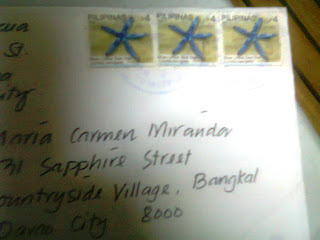 PILIPINAS 4 PILIPINAS 4 PILIPINAS 4
St.
City
Maria Carmen Miranda
Sapphire Street
ountryside Village, Bangkal
Davao City 8000